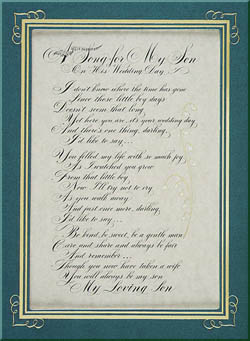 A Song for My Son
On His Wedding Day
I don't know where the time has gone
Since those little boy days
Doesn't seem that long
Yet here you are it's your wedding day
And there's one thing, darling,
I'd like to say...
You filled my life with so much joy
As I watched you grow
From that little boy
Now I'll try not to cry
As you walk away
And just once more, darling,
I'd like to say...
Be kind, be sweet, be a gentle man
Care and share and always be fair
And remember...
Though you now have taken a wife
You will always be my son
My Loving Son